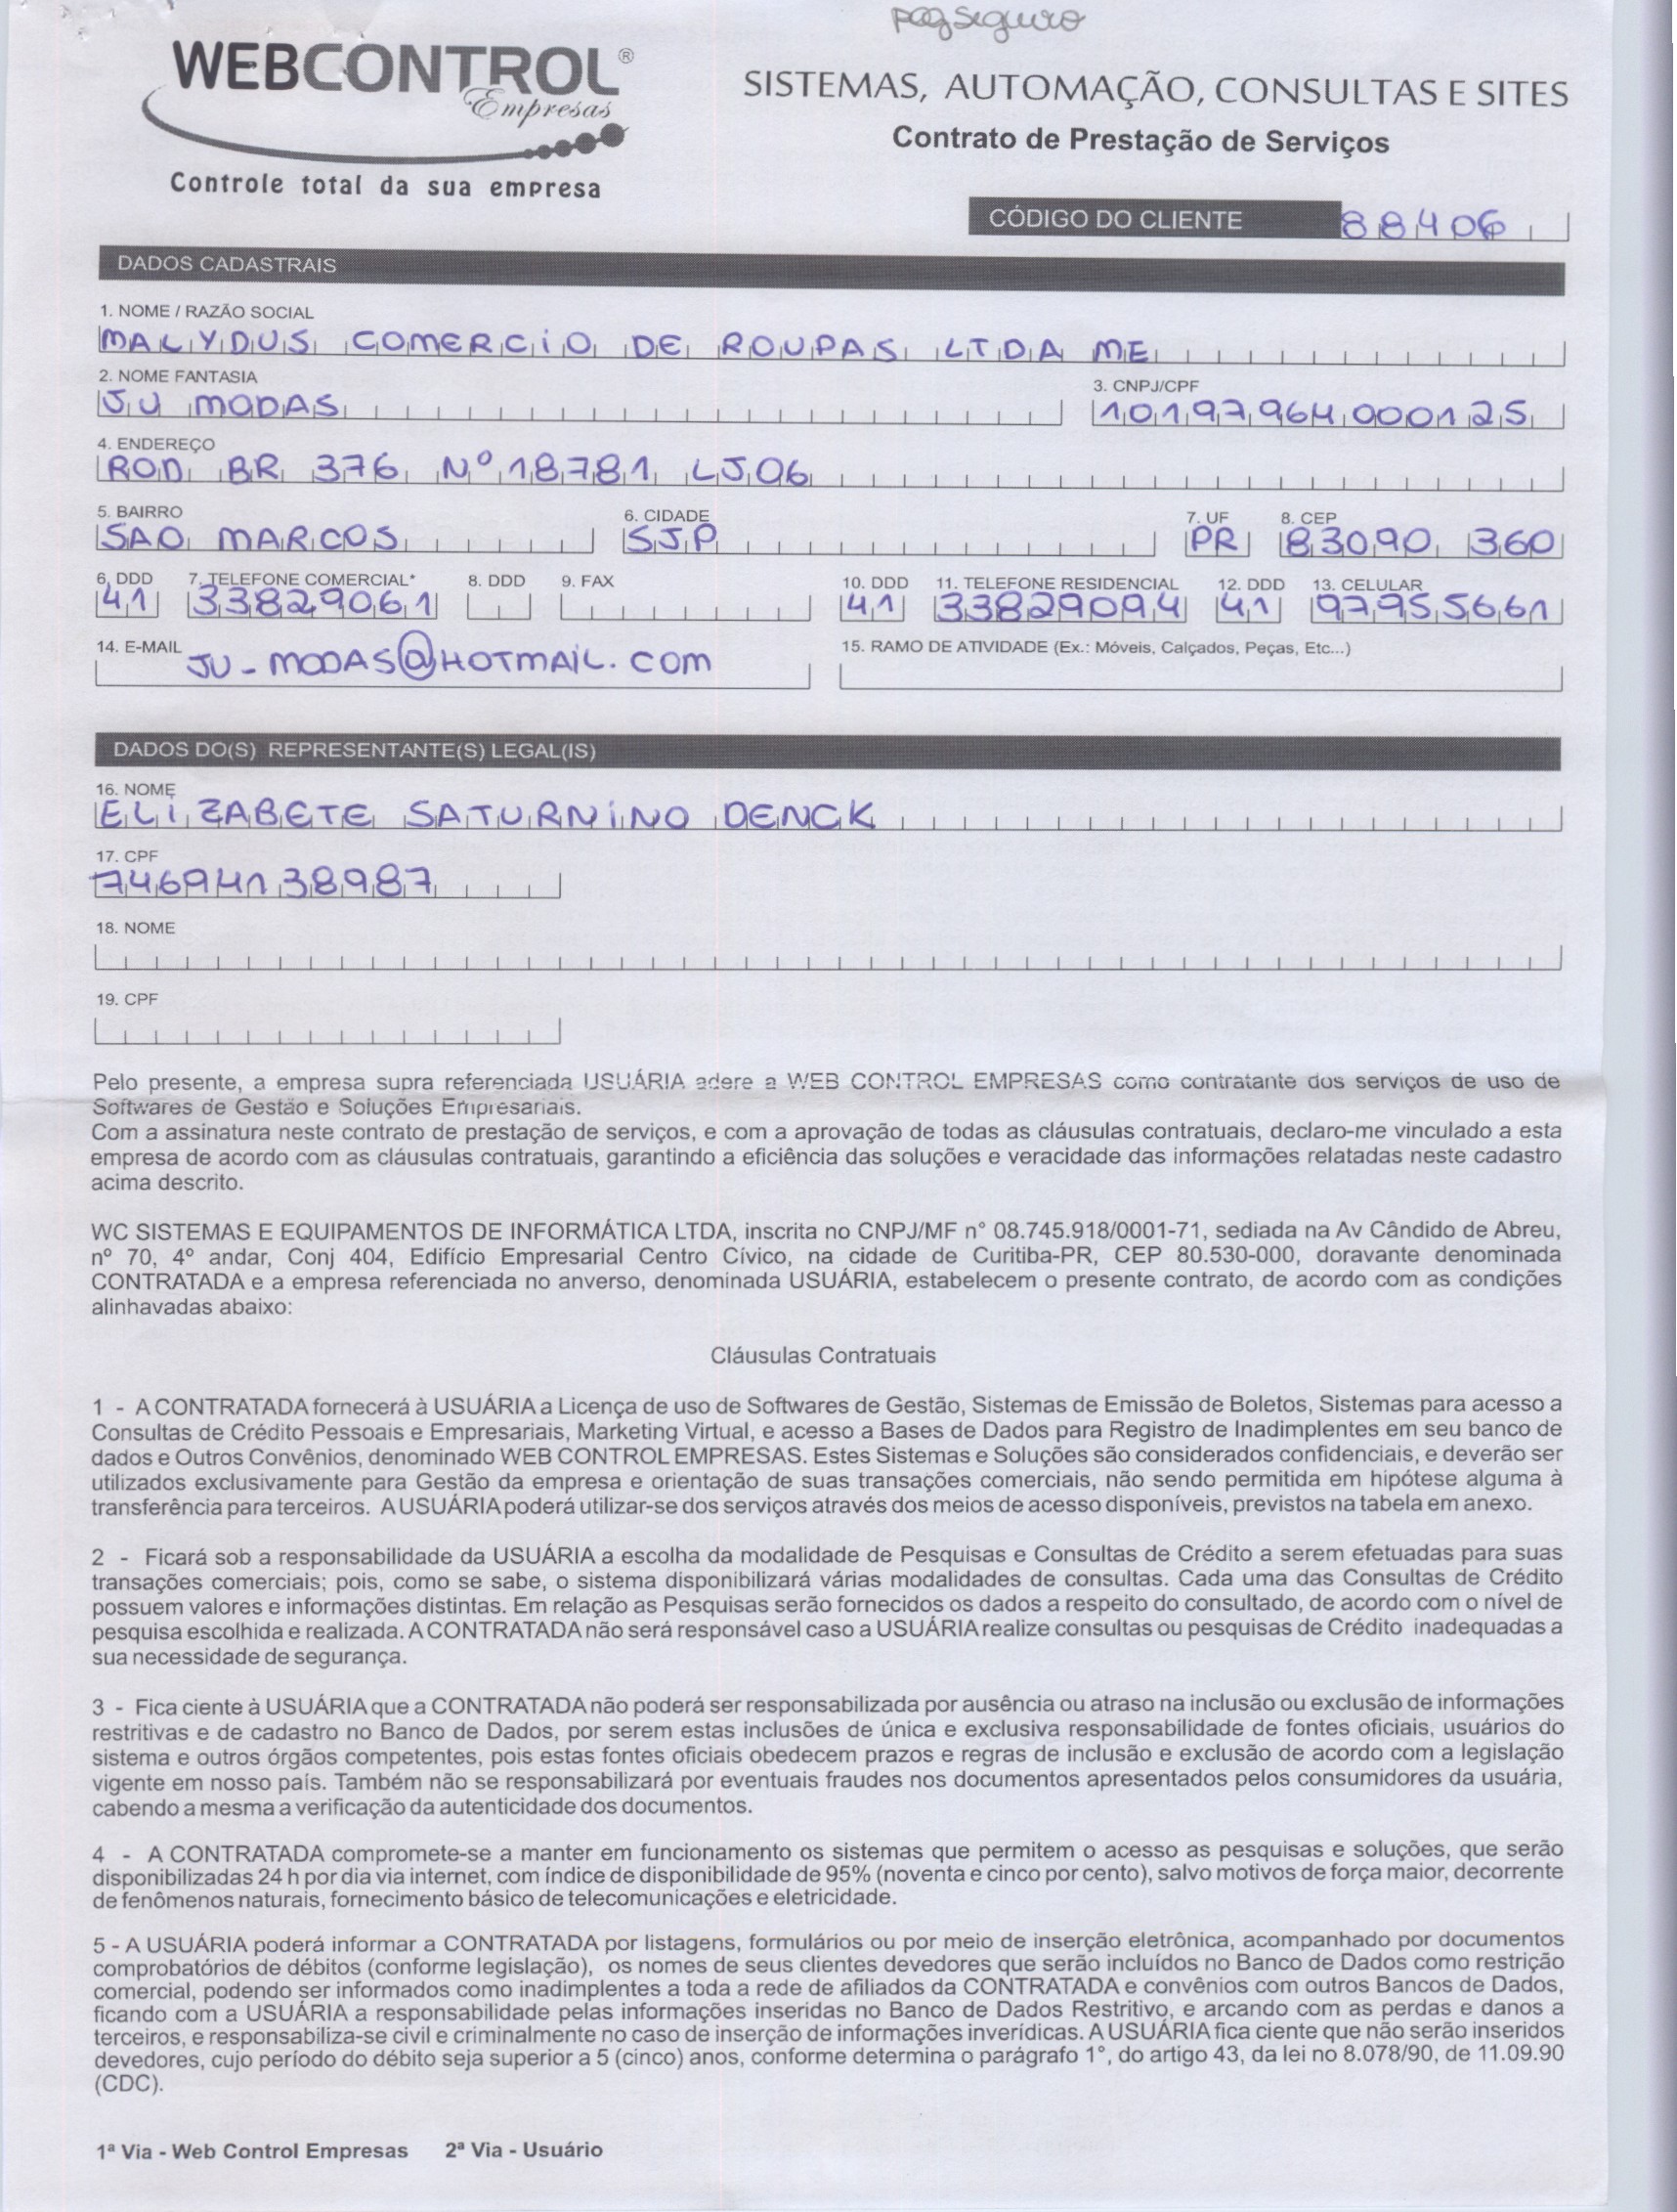 pagseguro
WEBCONTROL®
Empresas
Controle total da sua empresa
SISTEMAS, AUTOMAÇÃO, CONSULTAS E SITES
Contrato de Prestação de Serviços
CÓDIGO DO CLIENTE 88406
DADOS CADASTRAIS
1. NOME / RAZÃO SOCIAL
MALYDUS COMERCIO DE ROUPAS LTDA ME
2. NOME FANTASIA 3. CNPJ/CPF
JU MODAS 10197964000125
4. ENDEREÇO
ROD BR 376 Nº 18781 LJ06
5. BAIRRO 6. CIDADE 7. UF 8. CEP
SAO MARCOS SJP PR 83090 360
6. DDD 7. TELEFONE COMERCIAL* 8. DDD 9. FAX 10. DDD 11. TELEFONE RESIDENCIAL 12. DDD 13. CELULAR
41 33829061 41 33829094 41 97955661
14. E-MAIL JU-MODAS@HOTMAIL.COM 15. RAMO DE ATIVIDADE (Ex.: Móveis, Calçados, Peças, Etc...)
DADOS DO(S) REPRESENTANTE(S) LEGAL(IS)
16. NOME
ELIZABETE SATURNINO DENCK
17. CPF
74694138987
18. NOME
19. CPF
Pelo presente, a empresa supra referenciada USUÁRIA adere a WEB CONTROL EMPRESAS como contratante dos serviços de uso de
Softwares de Gestão e Soluções Empresariais.
Com a assinatura neste contrato de prestação de serviços, e com a aprovação de todas as cláusulas contratuais, declaro-me vinculado a esta
empresa de acordo com as cláusulas contratuais, garantindo a eficiência das soluções e veracidade das informações relatadas neste cadastro
acima descrito.
WC SISTEMAS E EQUIPAMENTOS DE INFORMÁTICA LTDA, inscrita no CNPJ/MF n° 08.745.918/0001-71, sediada na Av Cândido de Abreu,
nº 70, 4º andar, Conj 404, Edifício Empresarial Centro Cívico, na cidade de Curitiba-PR, CEP 80.530-000, doravante denominada
CONTRATADA e a empresa referenciada no anverso, denominada USUÁRIA, estabelecem o presente contrato, de acordo com as condições
alinhavadas abaixo:
Cláusulas Contratuais
1 - A CONTRATADA fornecerá à USUÁRIA a Licença de uso de Softwares de Gestão, Sistemas de Emissão de Boletos, Sistemas para acesso a
Consultas de Crédito Pessoais e Empresariais, Marketing Virtual, e acesso a Bases de Dados para Registro de Inadimplentes em seu banco de
dados e Outros Convênios, denominado WEB CONTROL EMPRESAS. Estes Sistemas e Soluções são considerados confidenciais, e deverão ser
utilizados exclusivamente para Gestão da empresa e orientação de suas transações comerciais, não sendo permitida em hipótese alguma à
transferência para terceiros. A USUÁRIA poderá utilizar-se dos serviços através dos meios de acesso disponíveis, previstos na tabela em anexo.
2 - Ficará sob a responsabilidade da USUÁRIA a escolha da modalidade de Pesquisas e Consultas de Crédito a serem efetuadas para suas
transações comerciais; pois, como se sabe, o sistema disponibilizará várias modalidades de consultas. Cada uma das Consultas de Crédito
possuem valores e informações distintas. Em relação as Pesquisas serão fornecidos os dados a respeito do consultado, de acordo com o nível de
pesquisa escolhida e realizada. A CONTRATADA não será responsável caso a USUÁRIA realize consultas ou pesquisas de Crédito inadequadas a
sua necessidade de segurança.
3 - Fica ciente à USUÁRIA que a CONTRATADA não poderá ser responsabilizada por ausência ou atraso na inclusão ou exclusão de informações
restritivas e de cadastro no Banco de Dados, por serem estas inclusões de única e exclusiva responsabilidade de fontes oficiais, usuários do
sistema e outros órgãos competentes, pois estas fontes oficiais obedecem prazos e regras de inclusão e exclusão de acordo com a legislação
vigente em nosso país. Também não se responsabilizará por eventuais fraudes nos documentos apresentados pelos consumidores da usuária,
cabendo a mesma a verificação da autenticidade dos documentos.
4 - A CONTRATADA compromete-se a manter em funcionamento os sistemas que permitem o acesso as pesquisas e soluções, que serão
disponibilizadas 24 h por dia via internet, com índice de disponibilidade de 95% (noventa e cinco por cento), salvo motivos de força maior, decorrente
de fenômenos naturais, fornecimento básico de telecomunicações e eletricidade.
5 - A USUÁRIA poderá informar a CONTRATADA por listagens, formulários ou por meio de inserção eletrônica, acompanhado por documentos
comprobatórios de débitos (conforme legislação), os nomes de seus clientes devedores que serão incluídos no Banco de Dados como restrição
comercial, podendo ser informados como inadimplentes a toda a rede de afiliados da CONTRATADA e convênios com outros Bancos de Dados,
ficando com a USUÁRIA a responsabilidade pelas informações inseridas no Banco de Dados Restritivo, e arcando com as perdas e danos a
terceiros, e responsabiliza-se civil e criminalmente no caso de inserção de informações inverídicas. A USUÁRIA fica ciente que não serão inseridos
devedores, cujo período do débito seja superior a 5 (cinco) anos, conforme determina o parágrafo 1°, do artigo 43, da lei no 8.078/90, de 11.09.90
(CDC).
1ª Via - Web Control Empresas 2ª Via - Usuário